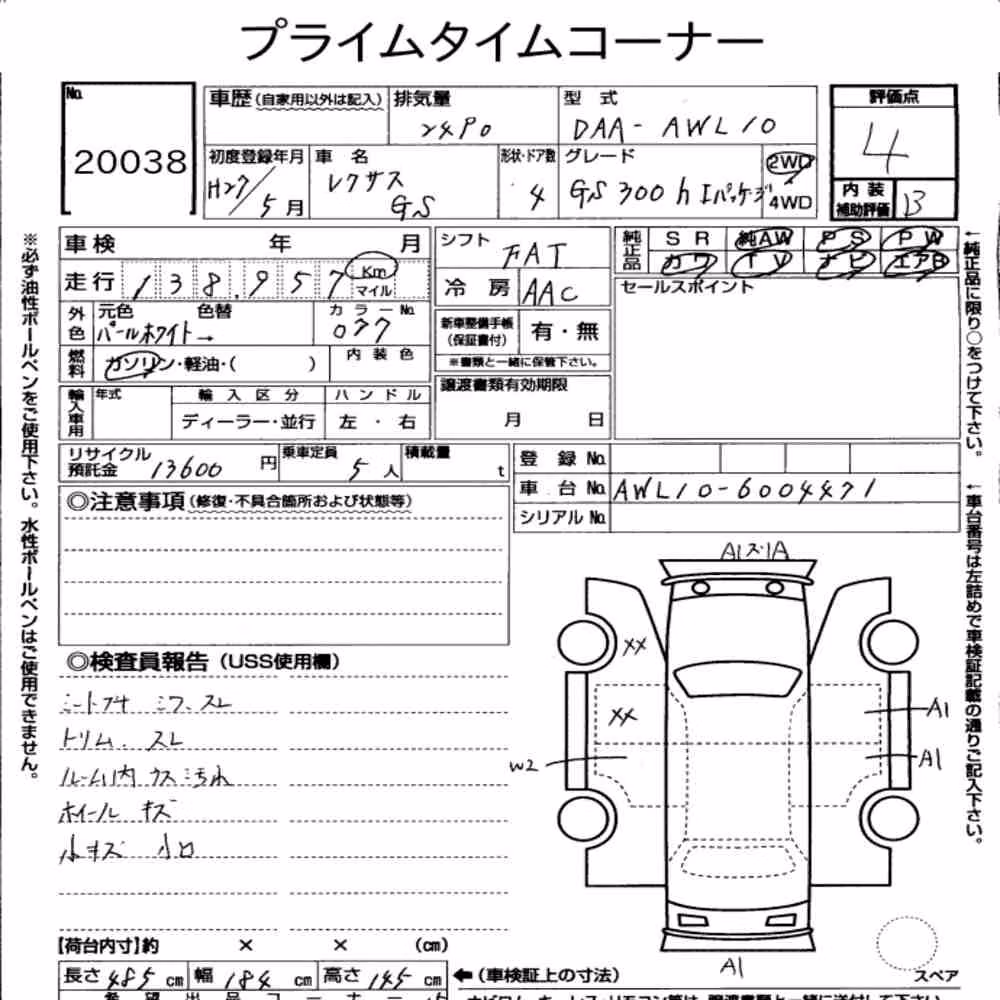 プライムタイムコーナー
No.
20038
車歴(自家用以外は記入)
排気量
2490
型 式
DAA-AWL10
評価点
4
内装
補助評価
B
初度登録年月
H27/5月
車 名
レクサス
GS
形状・ドア数
4
グレード
GS300h Iパッケージ
2WD
4WD
車検 年 月
シフト
FAT
純正品
SR 純AW PS PW
カワ TV ナビ エアB
走行 138,957 Km
マイル
冷 房
AAC
セールスポイント
外色
元色 色替
パールホワイト→
カラーNo.
077
新車整備手帳
(保証書付)
有・無
※書類と一緒に保管下さい。
燃料
ガソリン・軽油・( )
内 装 色
譲渡書類有効期限
月 日
輸入車用
年式
輸 入 区 分
ディーラー・並行
ハ ン ド ル
左 ・ 右
リサイクル
預託金 13600 円
乗車定員
5人
積載量
t
登 録 No.
車 台 No. AWL10-6004471
シリアル No.
◎注意事項(修復・不具合箇所および状態等)
◎検査員報告(USS使用欄)
シートコゲ シワ、スレ
トリム. スレ
ルーム内 カス汚れ
ホイール キズ
小キズ 小凹
A1ズ1A
XX
XX
W2
A1
A1
A1
スペア
【荷台内寸】約 × × (cm)
長さ 485 cm 幅 184 cm 高さ 145 cm
←(車検証上の寸法)
※必ず油性ボールペンをご使用下さい。水性ボールペンはご使用できません。
←純正品に限り○をつけて下さい。
←車台番号は左詰めで車検証記載の通りご記入下さい。